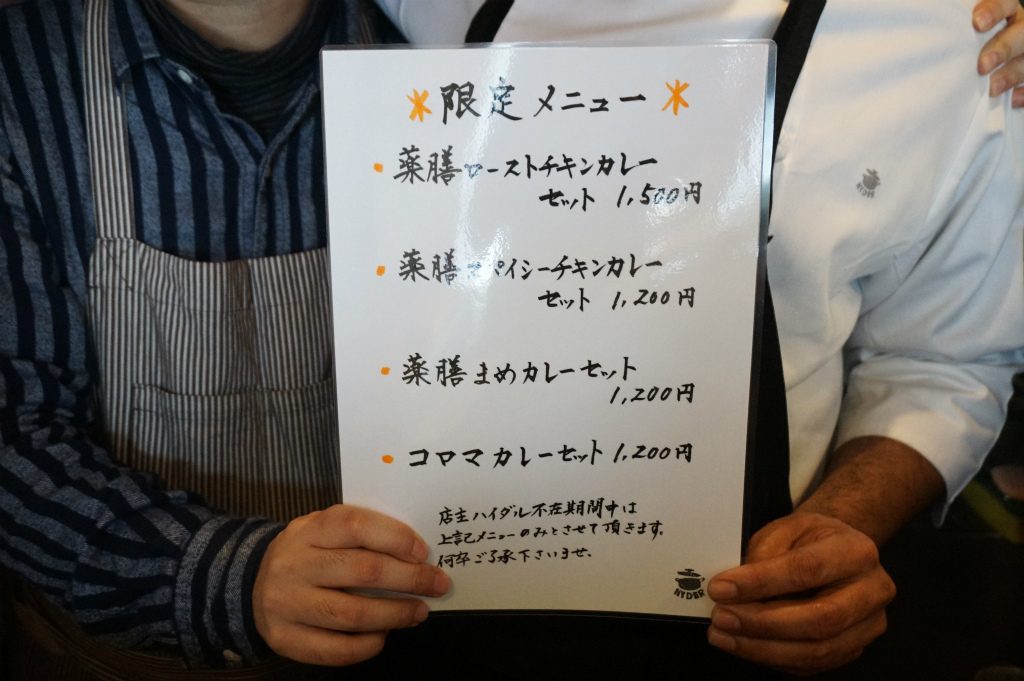 限定メニュー
薬膳ローストチキンカレー
セット 1,500円
薬膳スパイシーチキンカレー
セット 1,200円
薬膳まめカレーセット
1,200円
コロマカレーセット 1,200円
店主ハイダル不在期間中は
上記メニューのみとさせて頂きます。
何卒ご了承下さいませ、
HYDER
HYDER